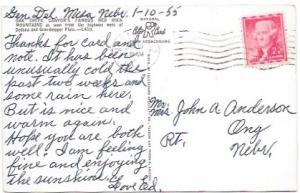 Gen. Del. Mesa, Nebr. 1-10-55
OAK CREEK CANYON'S FAMOUS RED ROCK
MOUNTAINS as seen from the highway west of
Sedona and Grasshopper Flats.
Thanks for card and
note. It has been
unusually cold the
past two weeks and
some rain here,
But is nice and
warm again.
Hope you are both
well. I am feeling
fine and enjoying
the sunshine.
Love Ed.
NATIONAL
Post Card
2¢
Mr
Mrs John A Anderson
Rt. Ong
Nebr.